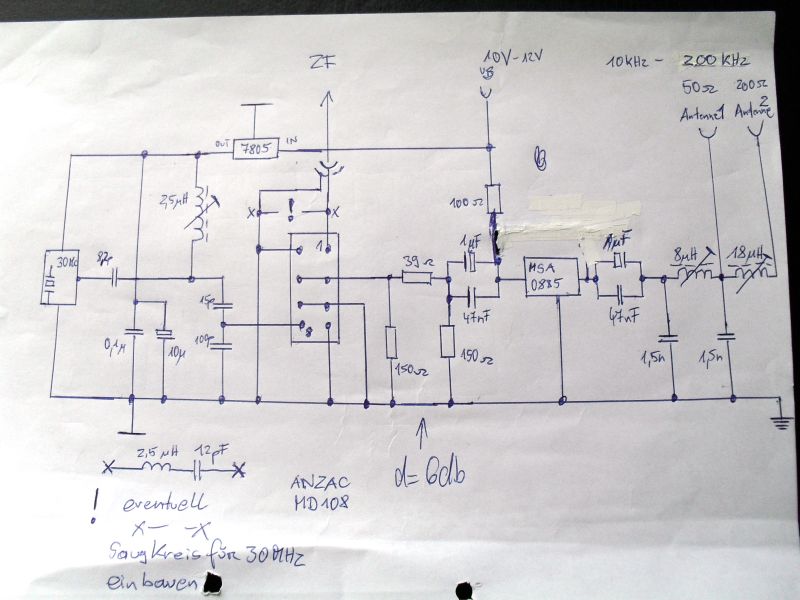 ZF
10V-12V
UB
10KHz - 200KHz
50Ω
Antenne 1
200Ω
Antenne 2
OUT
7805
IN
2,5µH
100Ω
X
!
X
1
30Mc
82p
39Ω
1µF
MSA
0885
1µF
8µH
18µH
15p
47nF
47nF
8
0,1µ
10µ
100p
150Ω
150Ω
1,5n
1,5n
2,5µH
12pF
X
X
ANZAC
MD108
d=6db
!
eventuell
X— —X
Saugkreis für 30MHz
einbauen